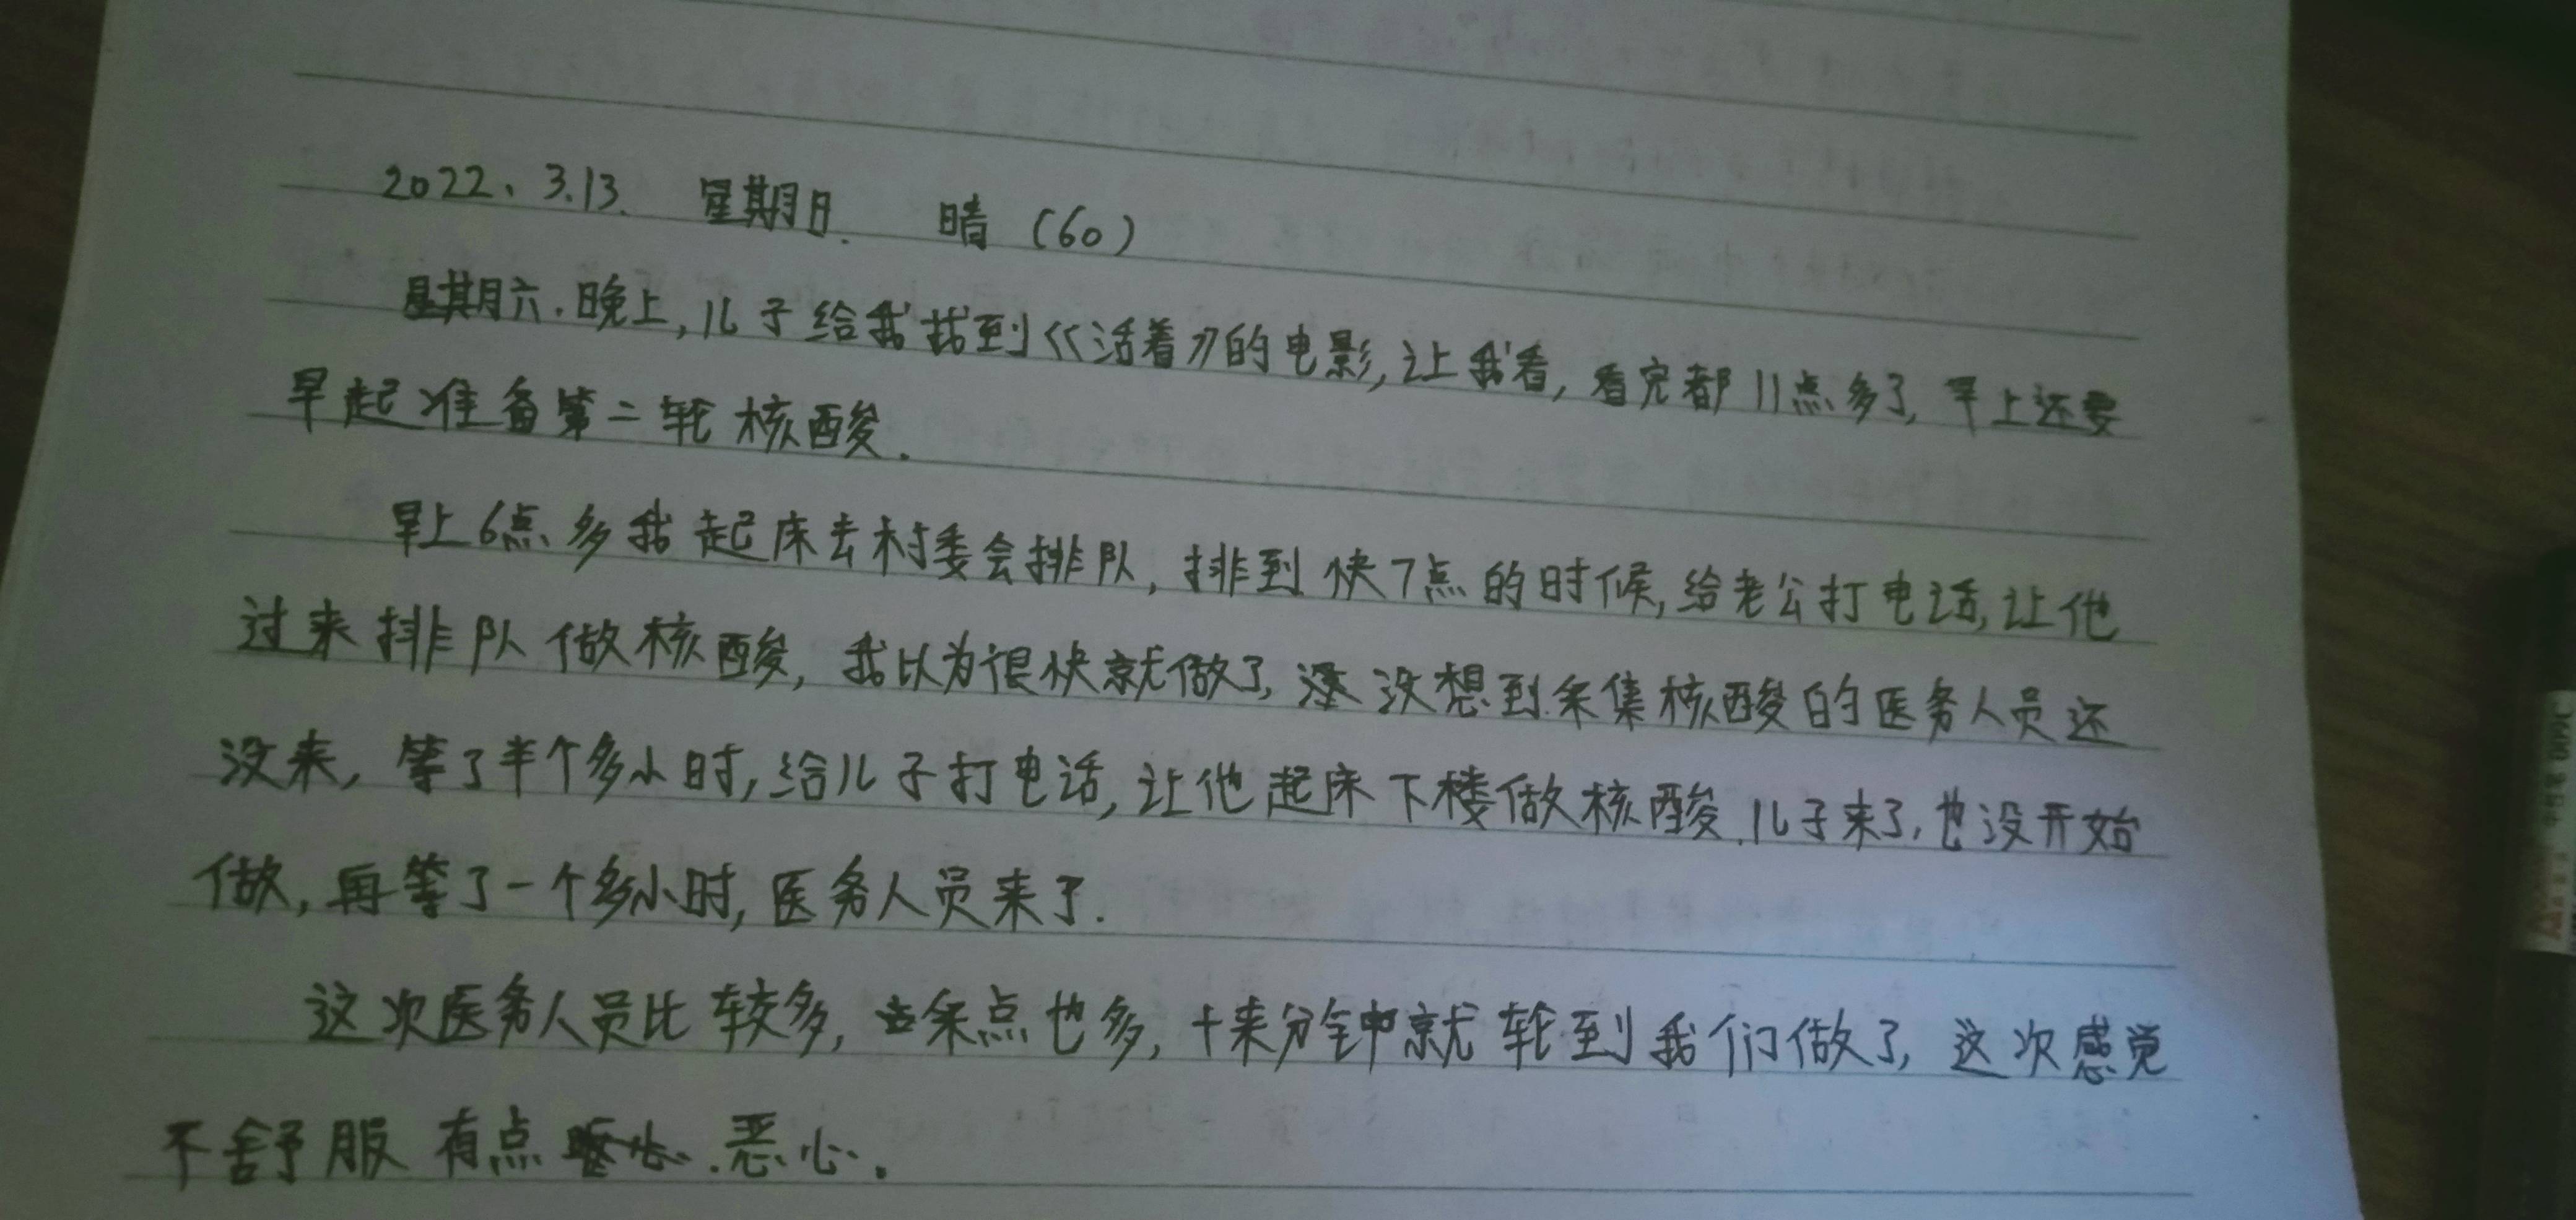 2022、3.13. 星期日. 晴 (60)
星期六.晚上,儿子给我找到《活着》的电影,让我看,看完都11点多了,早上还要
早起准备第二轮核酸.
早上6点多我起床去村委会排队,排到快7点的时候,给老公打电话,让他
过来排队做核酸,我以为很快就做了,没想到采集核酸的医务人员还
没来,等了半个多小时,给儿子打电话,让他起床下楼做核酸.儿子来了,也没开始
做,再等了一个多小时,医务人员来了.
这次医务人员比较多,采点也多,十来分钟就轮到我们做了,这次感觉
不舒服有点.恶心.